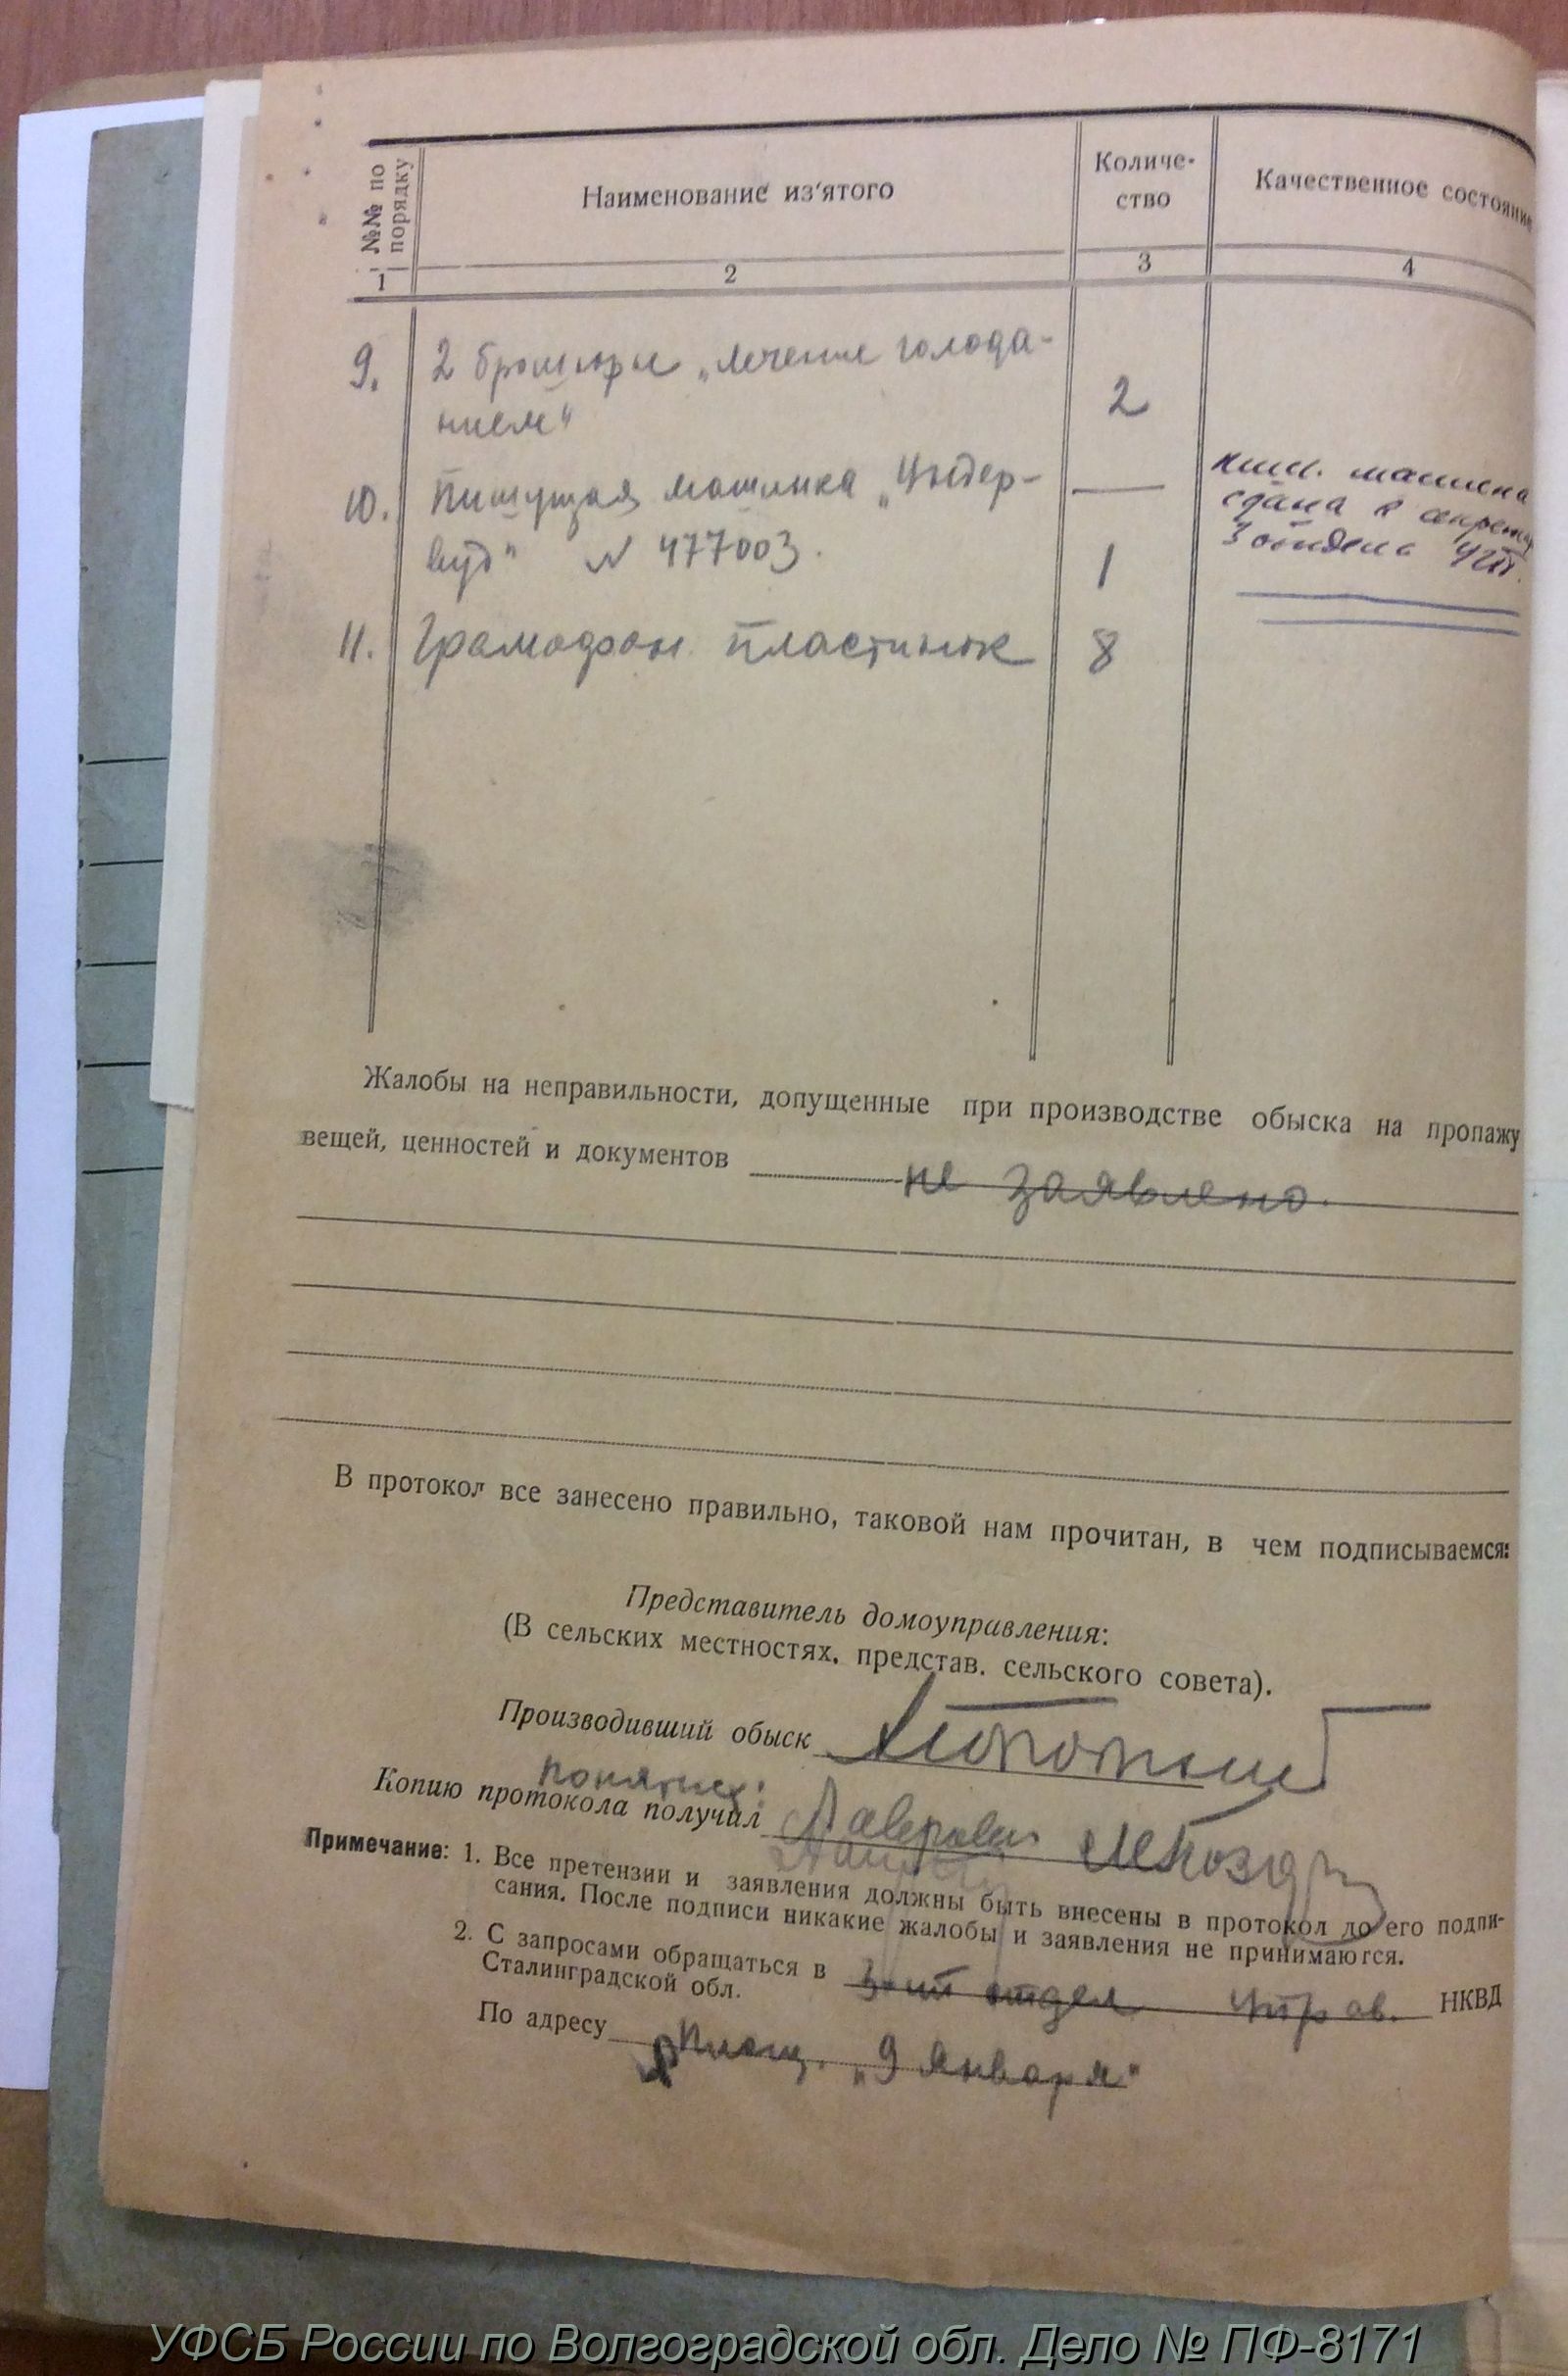 №№ по порядку
Наименование из'ятого
Количе-
ство
Качественное состояние
1
2
3
4
9. 2 брошюры „лечение голода-
нием“ 2
10. Пишущая машинка „Ундер- —
вуд“ № 477003. 1
пиш. машина
сдана в
3 отдела
11. Грамофон. пластинок 8
Жалобы на неправильности, допущенные при производстве обыска на пропажу
вещей, ценностей и документов не заявлено.
В протокол все занесено правильно, таковой нам прочитан, в чем подписываемся:
Представитель домоуправления:
(В сельских местностях, представ. сельского совета).
Производивший обыск
понятые:
Копию протокола получил
Примечание: 1. Все претензии и заявления должны быть внесены в протокол до его подпи-
сания. После подписи никакие жалобы и заявления не принимаются.
2. С запросами обращаться в 3-ий отдел Управ. НКВД
Сталинградской обл.
По адресу Площ. „9 Января“
УФСБ России по Волгоградской обл. Дело № ПФ-8171